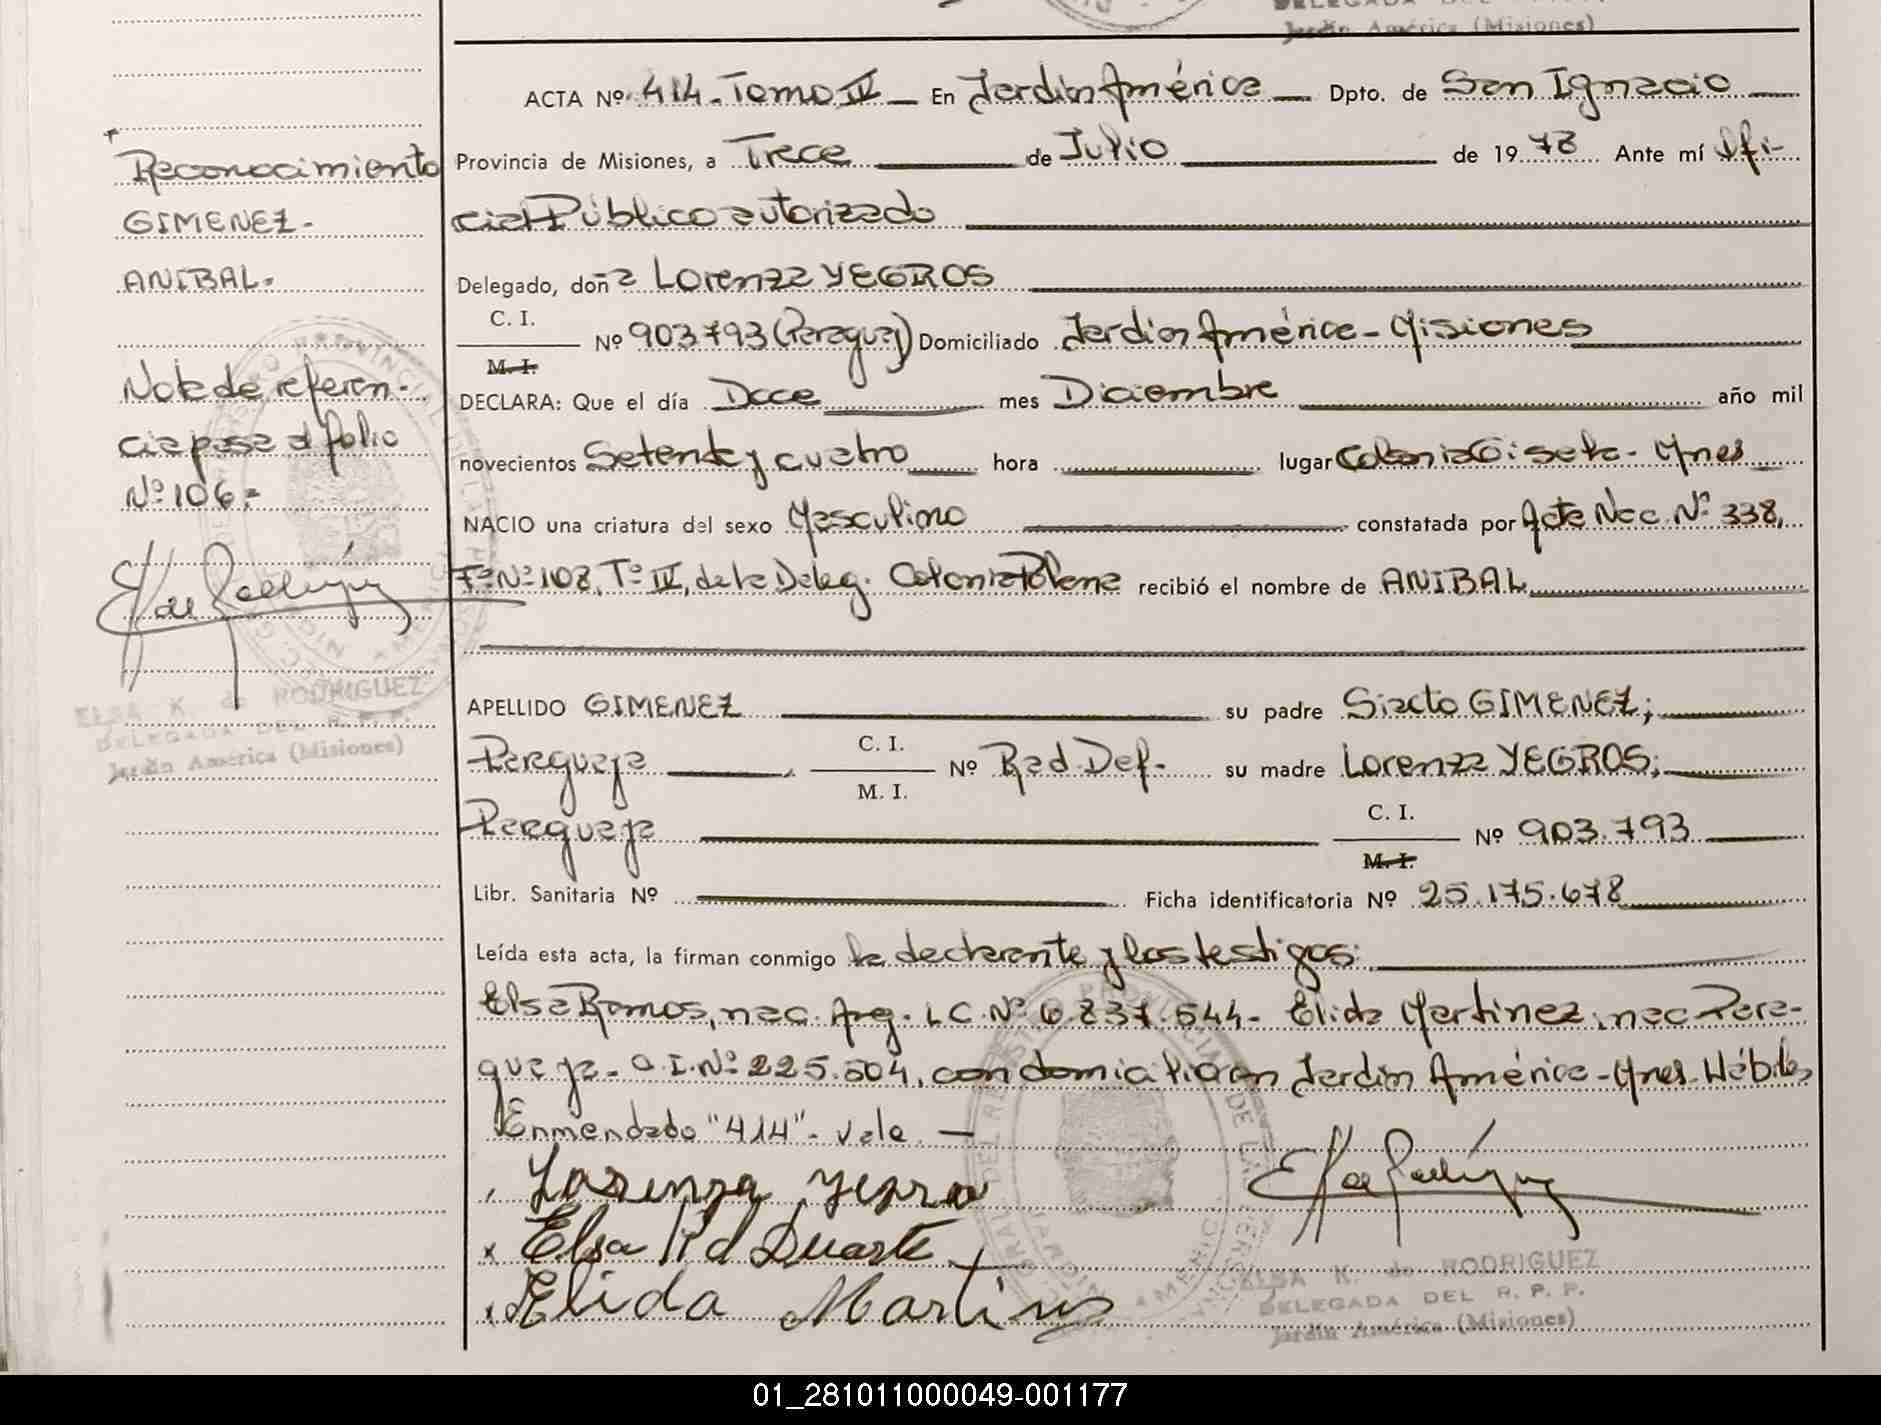 DELEGADA DEL R. P. P.
Jardín América (Misiones)
ACTA Nº 414 - Tomo IV — En Jardín América — Dpto. de San Ignacio —
Provincia de Misiones, a Trece de Julio de 1978 Ante mí Ofi-
cial Público autorizado
Delegado, doña Lorenza YEGROS
C. I.
M. I.
Nº 903793 (Paraguay) Domiciliado Jardín América - Misiones
DECLARA: Que el día Doce mes Diciembre año mil
novecientos Setenta y cuatro hora lugar Colonia Gisela - Mnes
NACIO una criatura del sexo Masculino constatada por Acta Nac. Nº 338,
Fº Nº 108, Tº IV, de la Deleg. Colonia Polana recibió el nombre de ANIBAL
APELLIDO GIMENEZ su padre Siacto GIMENEZ;
Paraguaya C. I. M. I. Nº Rad. Def. su madre Lorenza YEGROS;
Paraguaya C. I. M. I. Nº 903.793
Libr. Sanitaria Nº Ficha identificatoria Nº 25.175.678
Leída esta acta, la firman conmigo la declarante y los testigos:
Elsa Ramos, nac. Arg. L.C. Nº 6.837.544 - Elida Martinez, nac. Para-
guaya - C.I. Nº 225.504, con domicilio en Jardín América - Mnes. Hábiles
Enmendado "414" - Vale. —
Lorenza Yegro
Elsa R d Duarte
Elida Martines
ELSA K. de RODRIGUEZ
DELEGADA DEL R. P. P.
Jardín América (Misiones)
Reconocimiento
GIMENEZ -
ANIBAL.
Nota de referen-
cia pasa al folio
Nº 106 -
ELSA K. de RODRIGUEZ
DELEGADA DEL R. P. P.
Jardín América (Misiones)
01_281011000049-001177